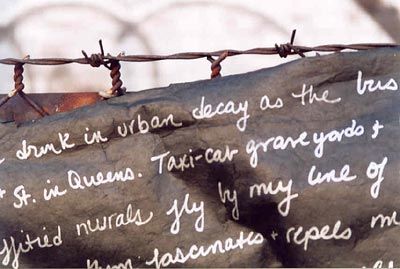 drink in urban decay as the bus
St. in Queens. Taxi-cab graveyards +
murals fly by my line of
fascinates + repels